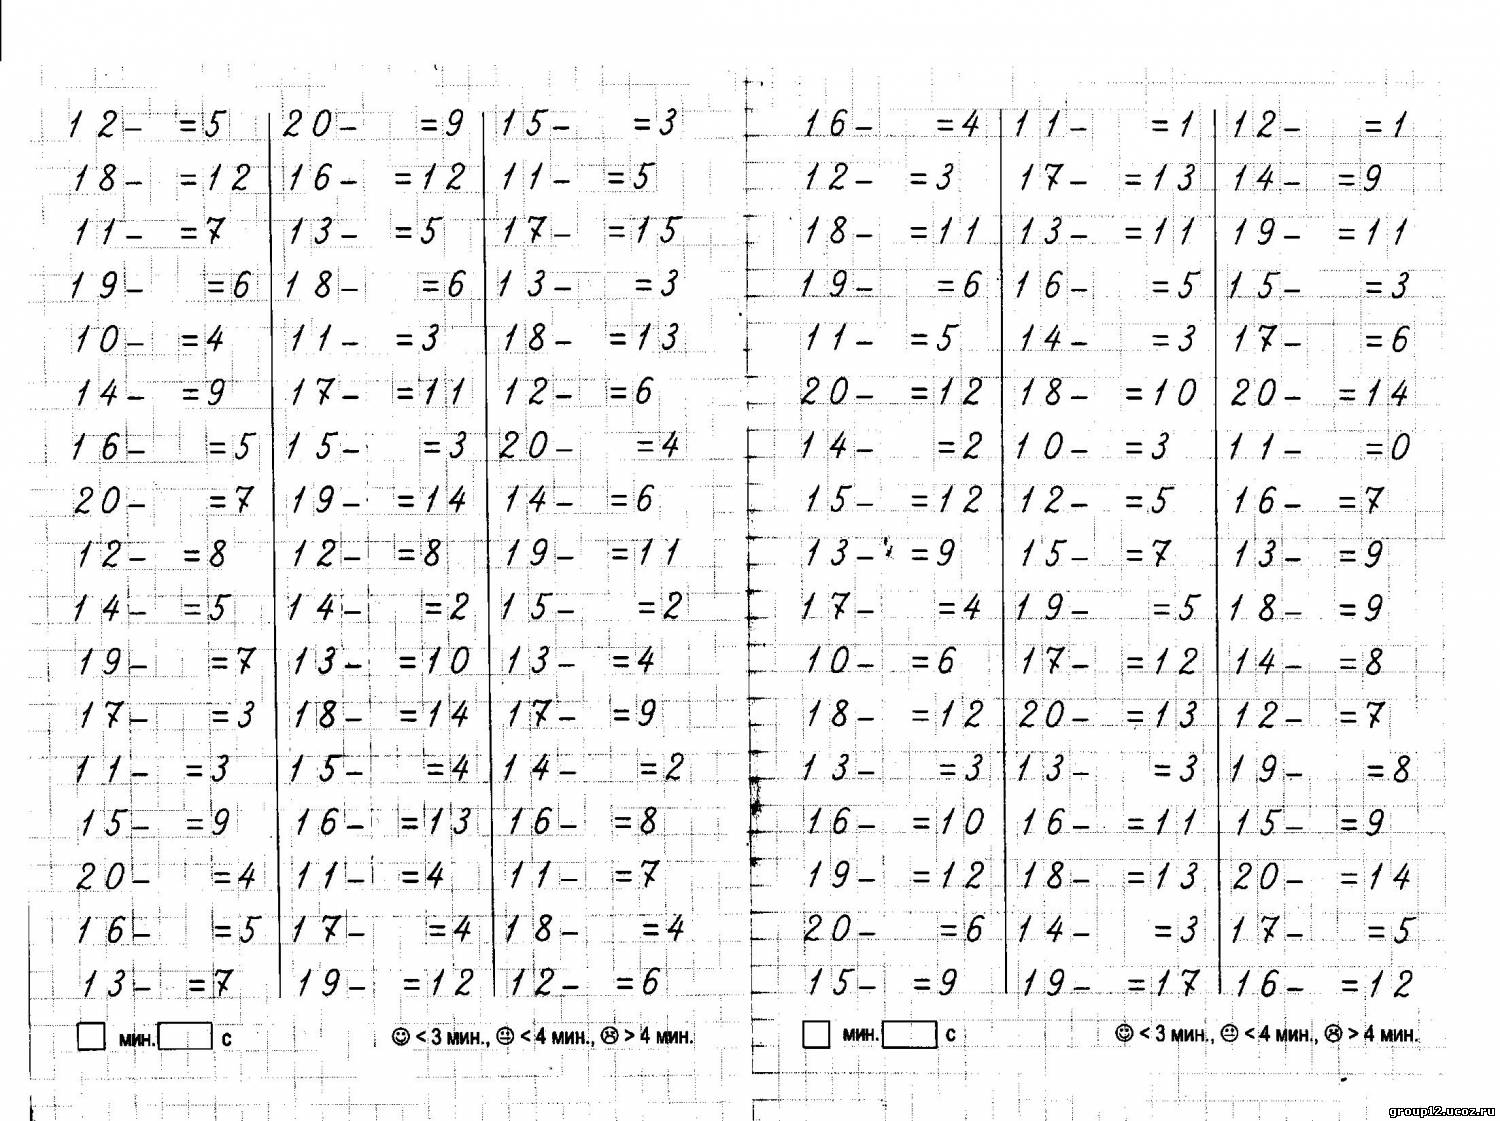 12- =5 20- =9 15- =3
18- =12 16- =12 11- =5
11- =7 13- =5 17- =15
19- =6 18- =6 13- =3
10- =4 11- =3 18- =13
14- =9 17- =11 12- =6
16- =5 15- =3 20- =4
20- =7 19- =14 14- =6
12- =8 12- =8 19- =11
14- =5 14- =2 15- =2
19- =7 13- =10 13- =4
17- =3 18- =14 17- =9
11- =3 15- =4 14- =2
15- =9 16- =13 16- =8
20- =4 11- =4 11- =7
16- =5 17- =4 18- =4
13- =7 19- =12 12- =6
мин. с ☺ < 3 мин., 😐 < 4 мин., ☹ > 4 мин.
16- =4 11- =1 12- =1
12- =3 17- =13 14- =9
18- =11 13- =11 19- =11
19- =6 16- =5 15- =3
11- =5 14- =3 17- =6
20- =12 18- =10 20- =14
14- =2 10- =3 11- =0
15- =12 12- =5 16- =7
13- =9 15- =7 13- =9
17- =4 19- =5 18- =9
10- =6 17- =12 14- =8
18- =12 20- =13 12- =7
13- =3 13- =3 19- =8
16- =10 16- =11 15- =9
19- =12 18- =13 20- =14
20- =6 14- =3 17- =5
15- =9 19- =17 16- =12
мин. с ☺ < 3 мин., 😐 < 4 мин., ☹ > 4 мин.
group12.ucoz.ru